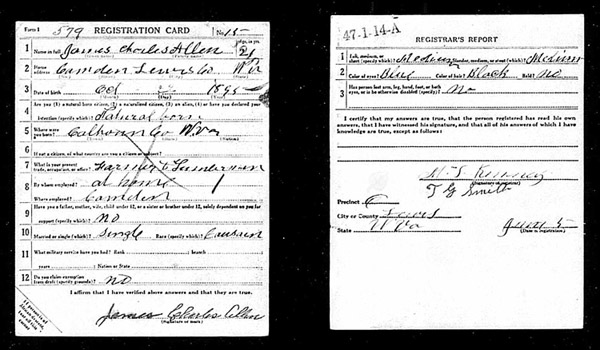 Form 1 579 REGISTRATION CARD No. 15
1 Name in full James Charles Allen Age, in yrs. 21
2 Home address Camden Lewis Co. W. Va
3 Date of birth Oct 1895
4 Are you (1) a natural born citizen, (2) a naturalized citizen, (3) an alien, (4) or have you declared your intention (specify which)? Natural born
5 Where were you born? Calhoun Co W. Va
6 If not a citizen, of what country are you a citizen or subject?
7 What is your present trade, occupation, or office? Farmer & Lumberman
8 By whom employed? at home
Where employed? Camden
9 Have you a father, mother, wife, child under 12, or a sister or brother under 12, solely dependent on you for
support (specify which)? NO
10 Married or single (which)? Single Race (specify which)? Caucasin
11 What military service have you had? Rank branch
years Nation or State
12 Do you claim exemption from draft (specify grounds)? NO
I affirm that I have verified above answers and that they are true.
James Charles Allen
(Signature or mark)
47-1-14-A
REGISTRAR'S REPORT
1 Tall, medium, or short (specify which)? Medium Slender, medium, or stout (which)? Medium
2 Color of eyes? Blue Color of hair? Black Bald? NO
3 Has person lost arm, leg, hand, foot, or both eyes, or is he otherwise disabled (specify)? No
I certify that my answers are true, that the person registered has read his own
answers, that I have witnessed his signature, and that all of his answers of which I have
knowledge are true, except as follows:
(Signature of registrar)
Precinct 6
City or County Lewis
State W Va June 5
(Date of registration)